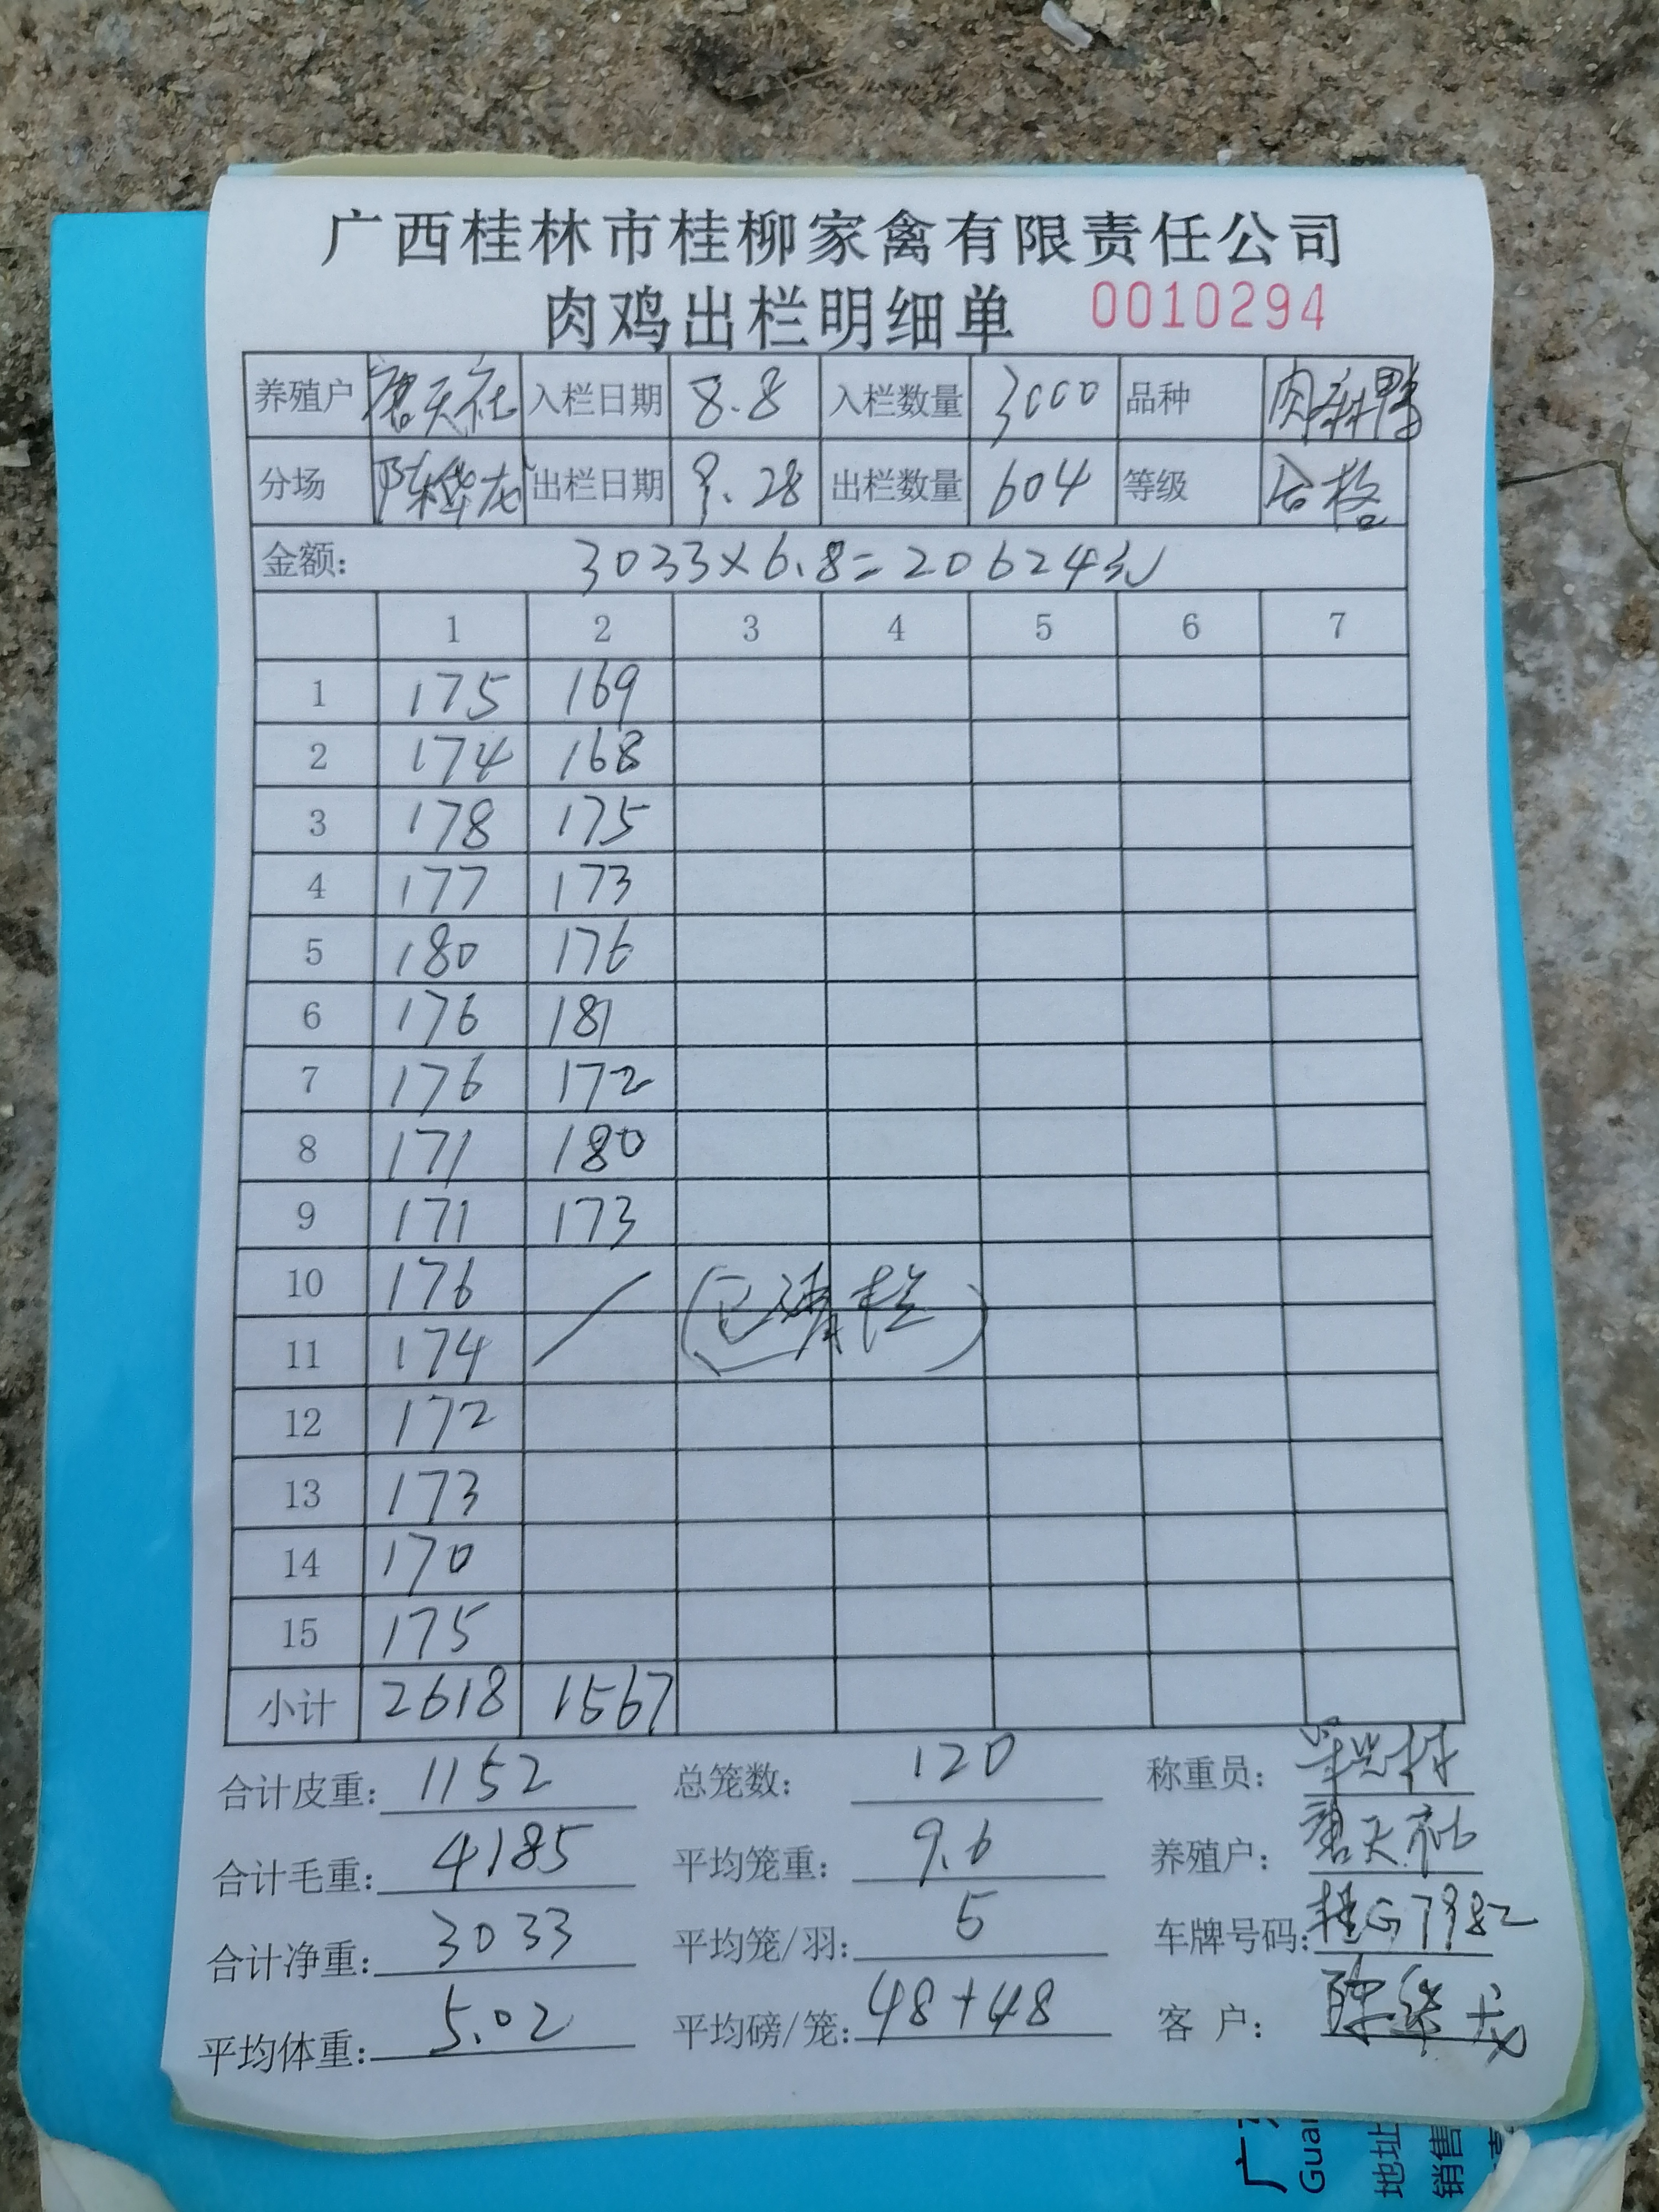 广西桂林市桂柳家禽有限责任公司
肉鸡出栏明细单 0010294
养殖户 唐天社 入栏日期 8.8 入栏数量 3000 品种 肉麻鸭
分场 陈华龙 出栏日期 9.28 出栏数量 604 等级 合格
金额: 3033×6.8=20624元
1 2 3 4 5 6 7
1 175 169
2 174 168
3 178 175
4 177 173
5 180 176
6 176 181
7 176 172
8 171 180
9 171 173
10 176 (已清栏)
11 174
12 172
13 173
14 170
15 175
小计 2618 1567
合计皮重: 1152 总笼数: 120 称重员:
合计毛重: 4185 平均笼重: 9.6 养殖户: 唐天社
合计净重: 3033 平均笼/羽: 5 车牌号码: 桂G7982
平均体重: 5.02 平均磅/笼: 48+48 客户: 陈华龙
广
Guai
地址
销售